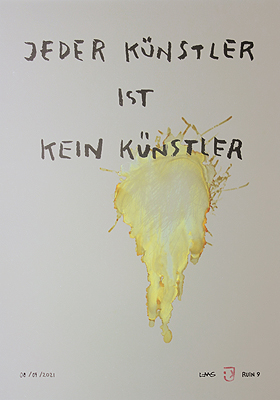 JEDER KÜNSTLER
IST
KEIN KÜNSTLER
08/09/2021
RUIN 9